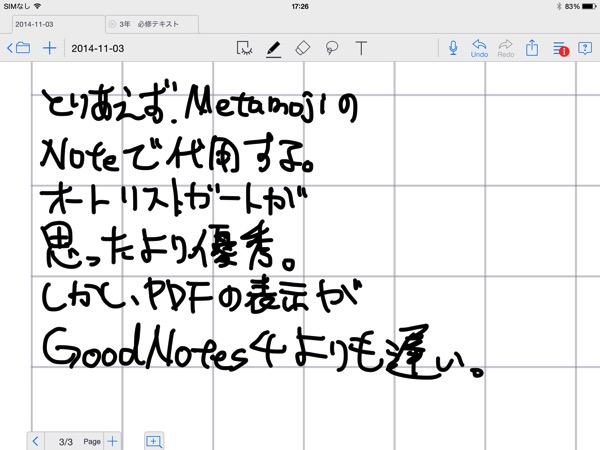 SIMなし 17:26 83%
2014-11-03 3年 必修テキスト
2014-11-03 T Undo Redo 1
とりあえず、Metamojiの
Noteで代用する。
オートリストガートが
思ったより優秀。
しかし、PDFの表示が
GoodNotes4よりも遅い。
3/3 Page